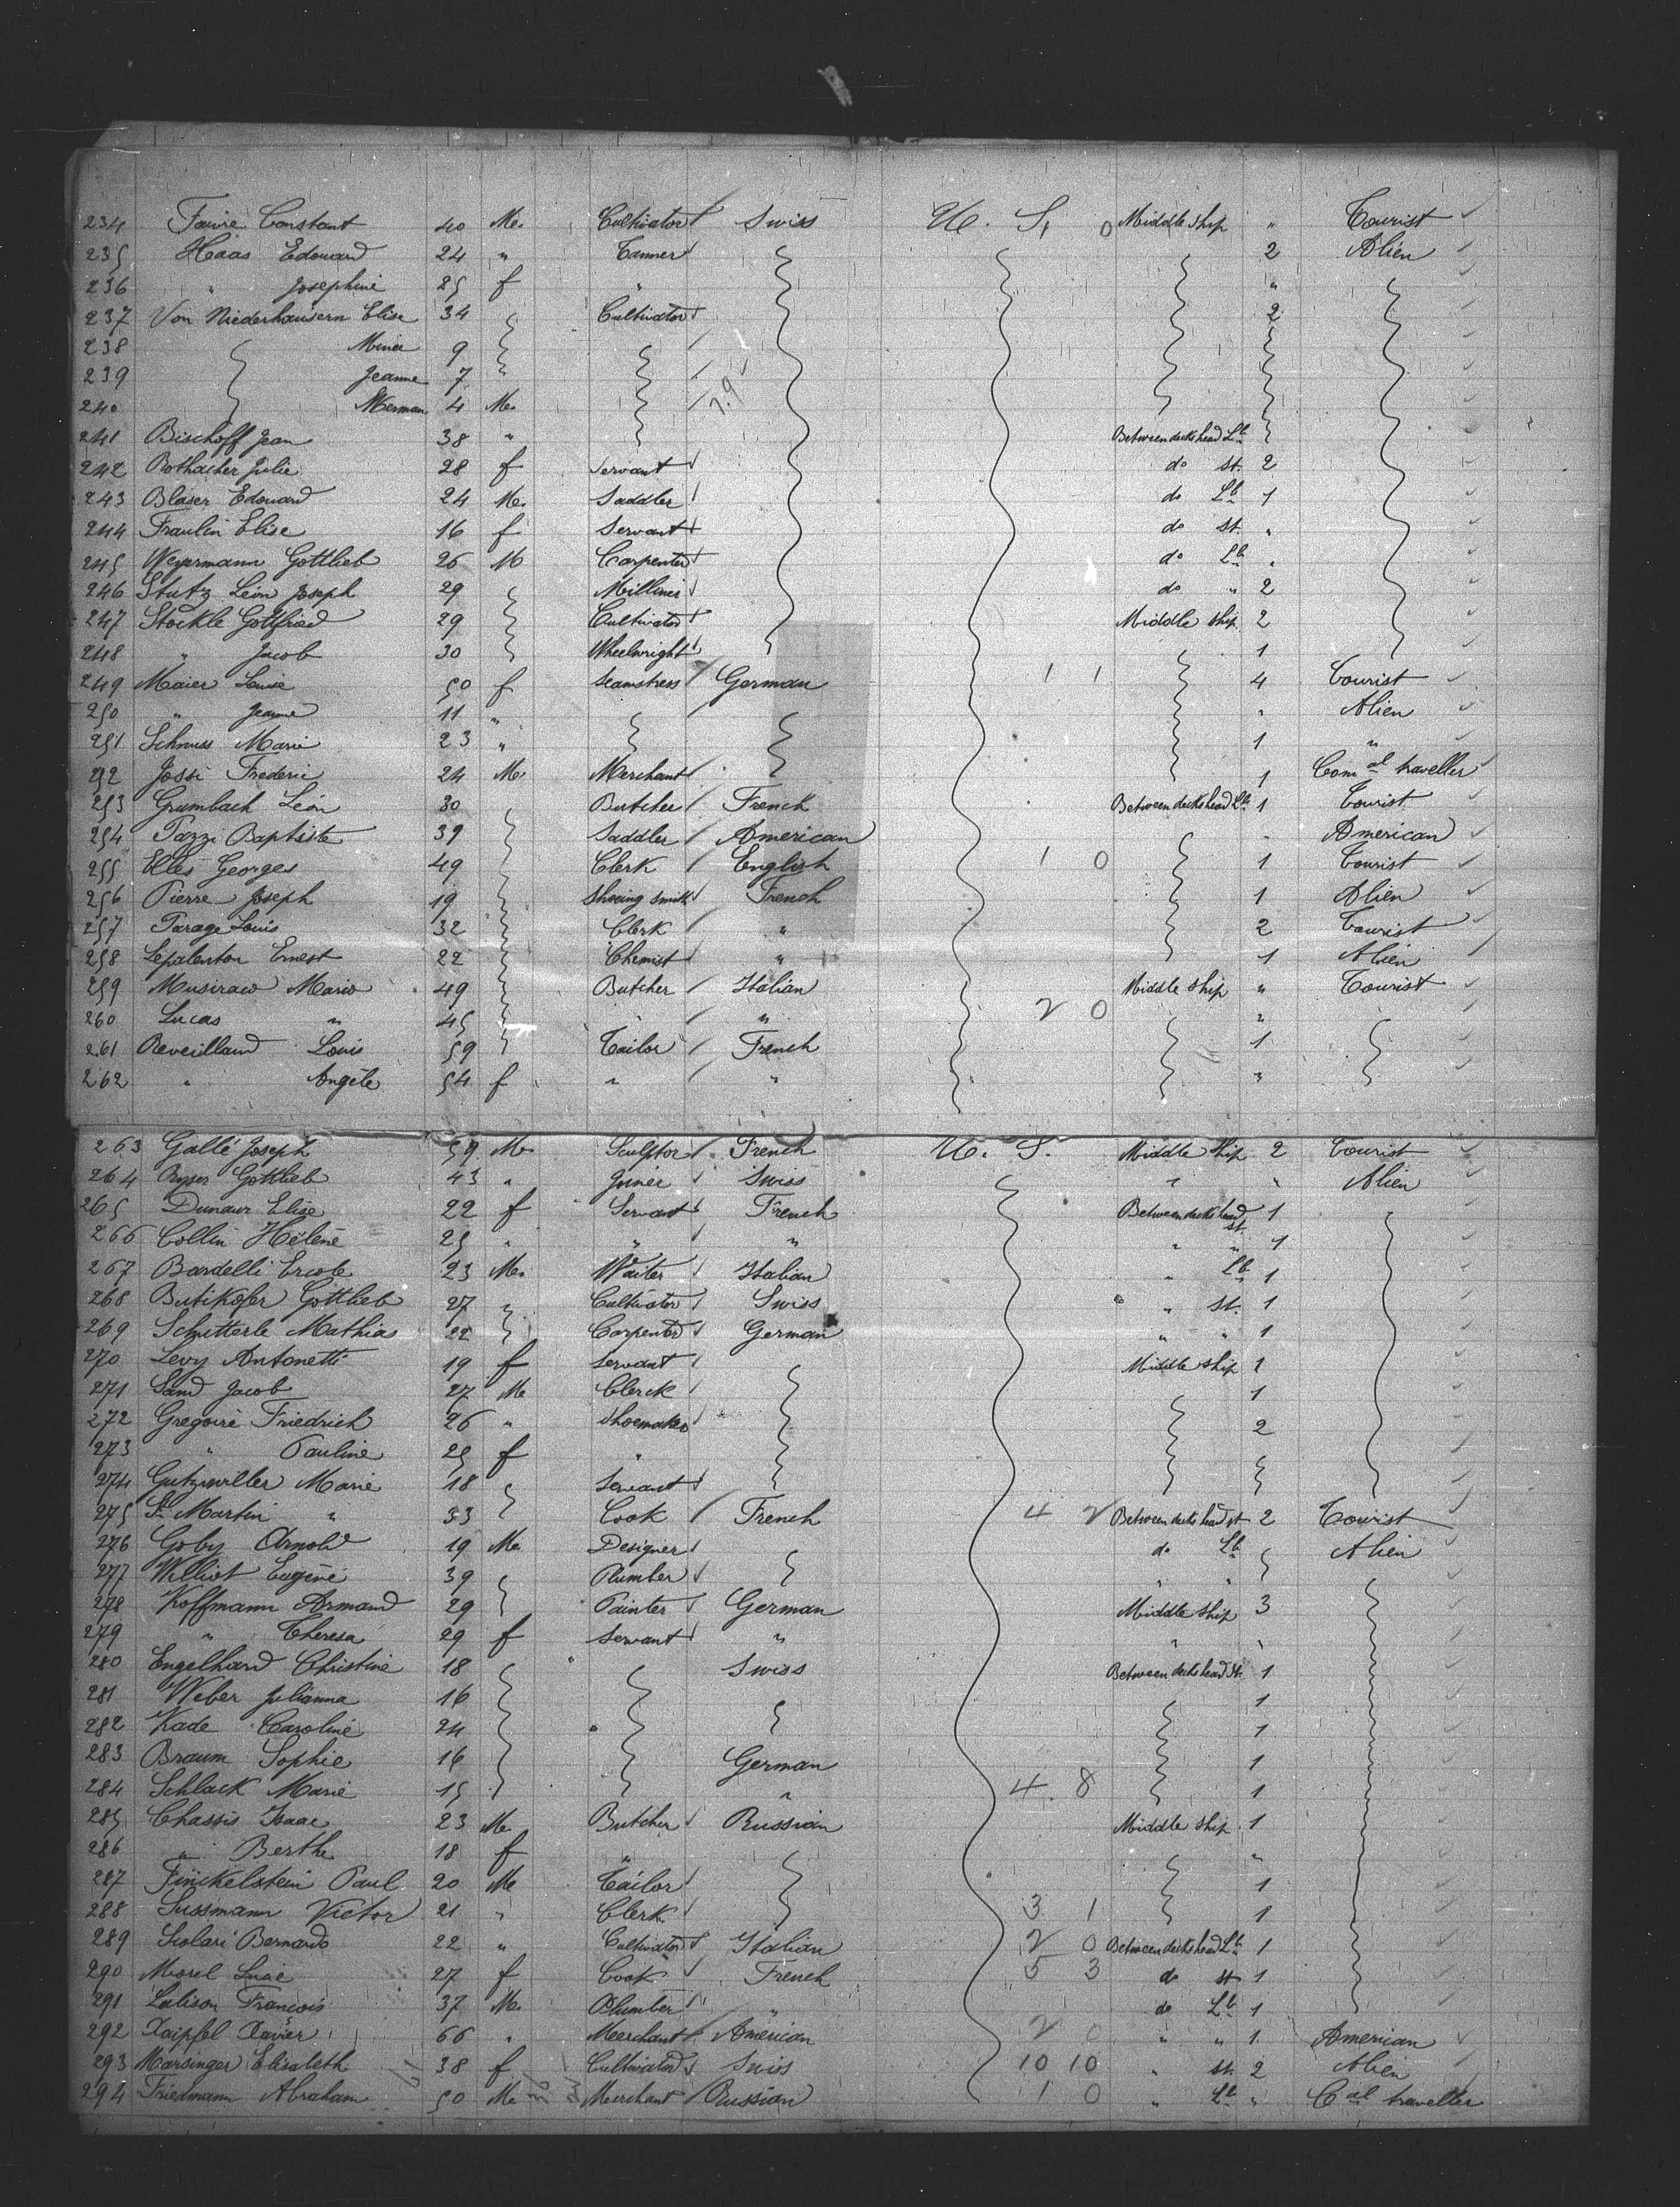 234 Faivre Constant 40 M. Cultivator Swiss U. S. 0 Middle ship " Tourist
235 Haas Edouard 24 " Tanner 2 Alien
236 " Josephine 25 f " "
237 Von Niederhausern Elise 34 Cultivator 2
238 9
239 Jeanne 7
240 Herman 4 M.
241 Bischoff Jean 38 " Between decks head Lb
242 Bothacher Julie 28 f Servant do St. 2
243 Blaser Edouard 24 M. Saddler do Lb 1
244 Fraulin Elise 16 f Servant do St. "
245 Weyermann Gottlieb 26 M Carpenter do Lb "
246 Stutz Léon Joseph 29 Milliner do " 2
247 Stockle Gottfried 29 Cultivator Middle ship 2
248 " Jacob 30 Wheelwright 1
249 Maier Louise 50 f Seamstress German 1 1 4 Tourist
250 " Jeanne 11 " " Alien
251 Schnuss Marie 23 " 1 "
252 Jossi Frederic 24 M. Merchant 1 Com al traveller
253 Grumbach Léon 30 Butcher French Between decks head Lb 1 Tourist
254 Pazzi Baptiste 39 Saddler American " American
255 Georges 49 Clerk English 1 0 1 Tourist
256 Pierre Joseph 19 Shoeing smith French 1 Alien
257 Parage Louis 32 Clerk " 2 Tourist
258 Ernest 22 Chemist " 1 Alien
259 Mario 49 Butcher Italian Middle ship " Tourist
260 Lucas " 45 " 2 0 "
261 Reveilland Louis 59 Tailor French 1
262 " Angèle 54 f " " "
263 Gallé Joseph 59 M. Sculptor French U. S. Middle ship 2 Tourist
264 Ryser Gottlieb 43 " Joiner Swiss " " Alien
265 Elise 22 f Servant French Between decks head St. 1
266 Collin Hélène 25 " " " " " 1
267 Bardelli Ercole 23 M. Waiter Italian " Lb 1
268 Butikofer Gottlieb 27 " Cultivator Swiss " St. 1
269 Schutterle Mathias 22 Carpenter German " " 1
270 Levy Antonetti 19 f Servant Middle ship 1
271 Sand Jacob 27 M. Clerck 1
272 Gregoire Friedrich 26 " Shoemaker 2
273 " Pauline 25 f "
274 Gutzwiller Marie 18 Servant
275 St Martin " 33 Cook French 4 2 Between decks head st 2 Tourist
276 Goby Arnold 19 M. Designer do Lb Alien
277 Williot Eugène 39 Plumber " "
278 Koffmann Armand 29 Painter German Middle ship 3
279 " Theresa 29 f Servant " " "
280 Engelhard Christine 18 " Swiss Between decks head St. 1
281 Weber Julianna 16 1
282 Kade Caroline 24 " 1
283 Braum Sophie 16 German 1
284 Schlack Marie 15 " 4 8 1
285 Chassis Isaac 23 M. Butcher Russian Middle ship 1
286 " Berthe 18 f " "
287 Finckelstein Paul 20 M. Tailor 1
288 Sussmann Victor 21 " Clerk 3 1 1
289 Scolari Bernardo 22 " Cultivator Italian 2 0 Between decks head Lb 1
290 Morel Lucie 27 f Cook French 5 3 do st 1
291 Lalison Francois 37 M. Plumber " do Lb 1
292 Xavier 66 " Merchant American 2 0 " " 1 American
293 Marsinger Elisabeth 38 f Cultivator Swiss 10 10 " st. 2 Alien
294 Friedmann Abraham 50 M. Merchant Russian 1 0 " Lb " C al traveller